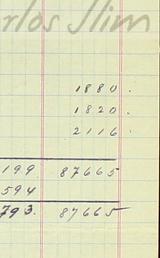 rlos Slim
1880.
1820.
2116.
199 87665
594
793. 87665